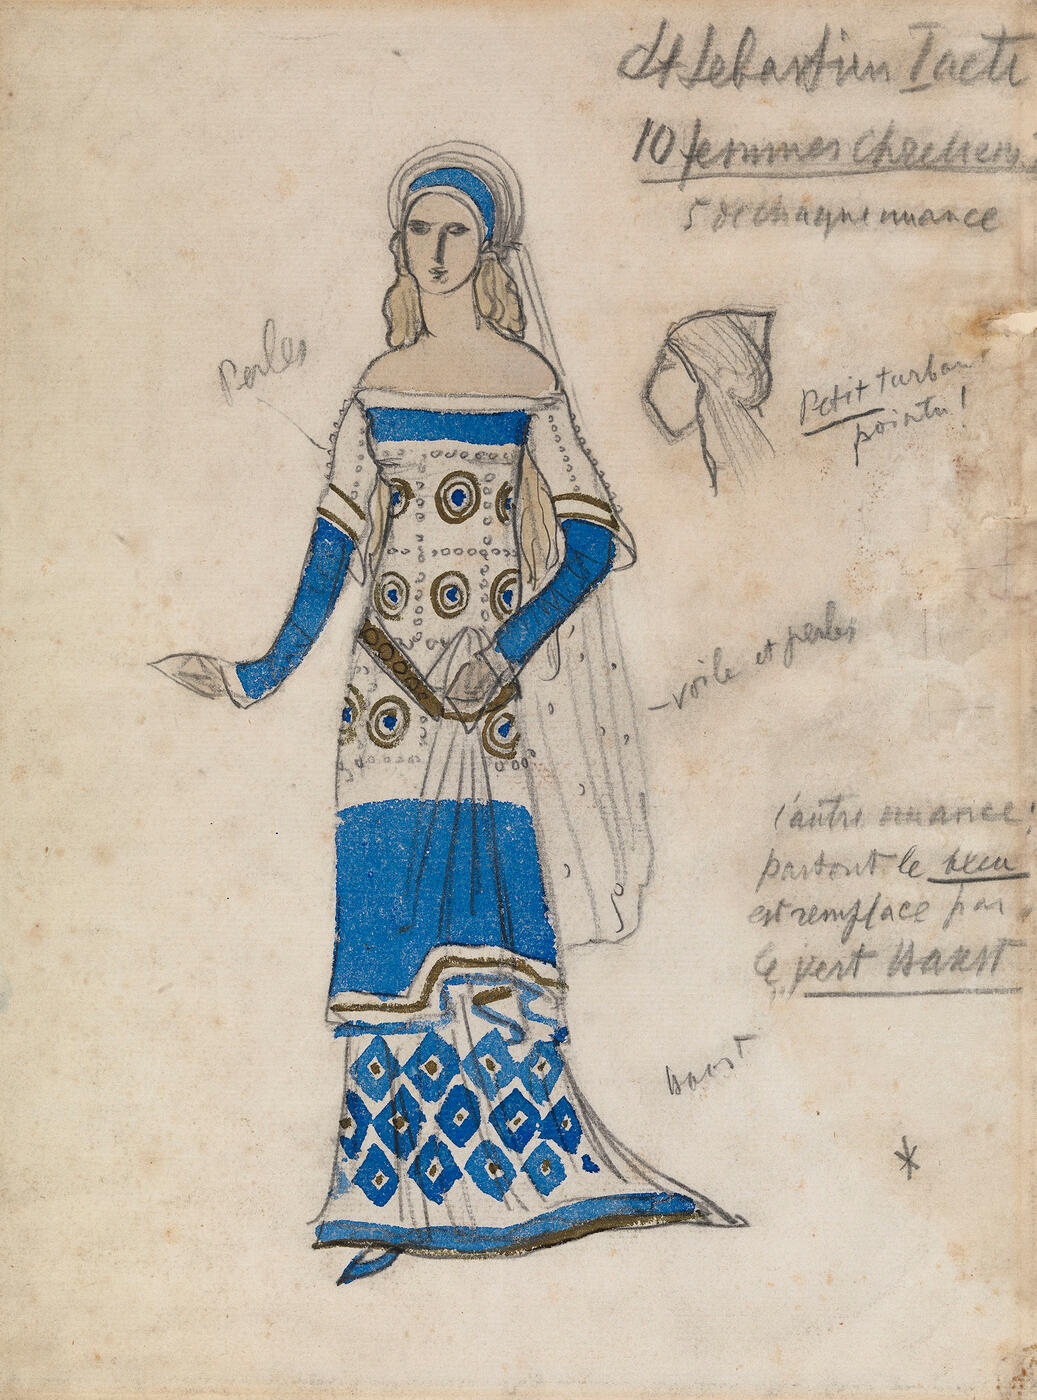 St Sebastien I acte
10 femmes Chretiens
5 de chaque nuance
Perles
Petit turban
pointu!
voile et perles
l'autre nuance!
partout le bleu
est remplacé par
le vert